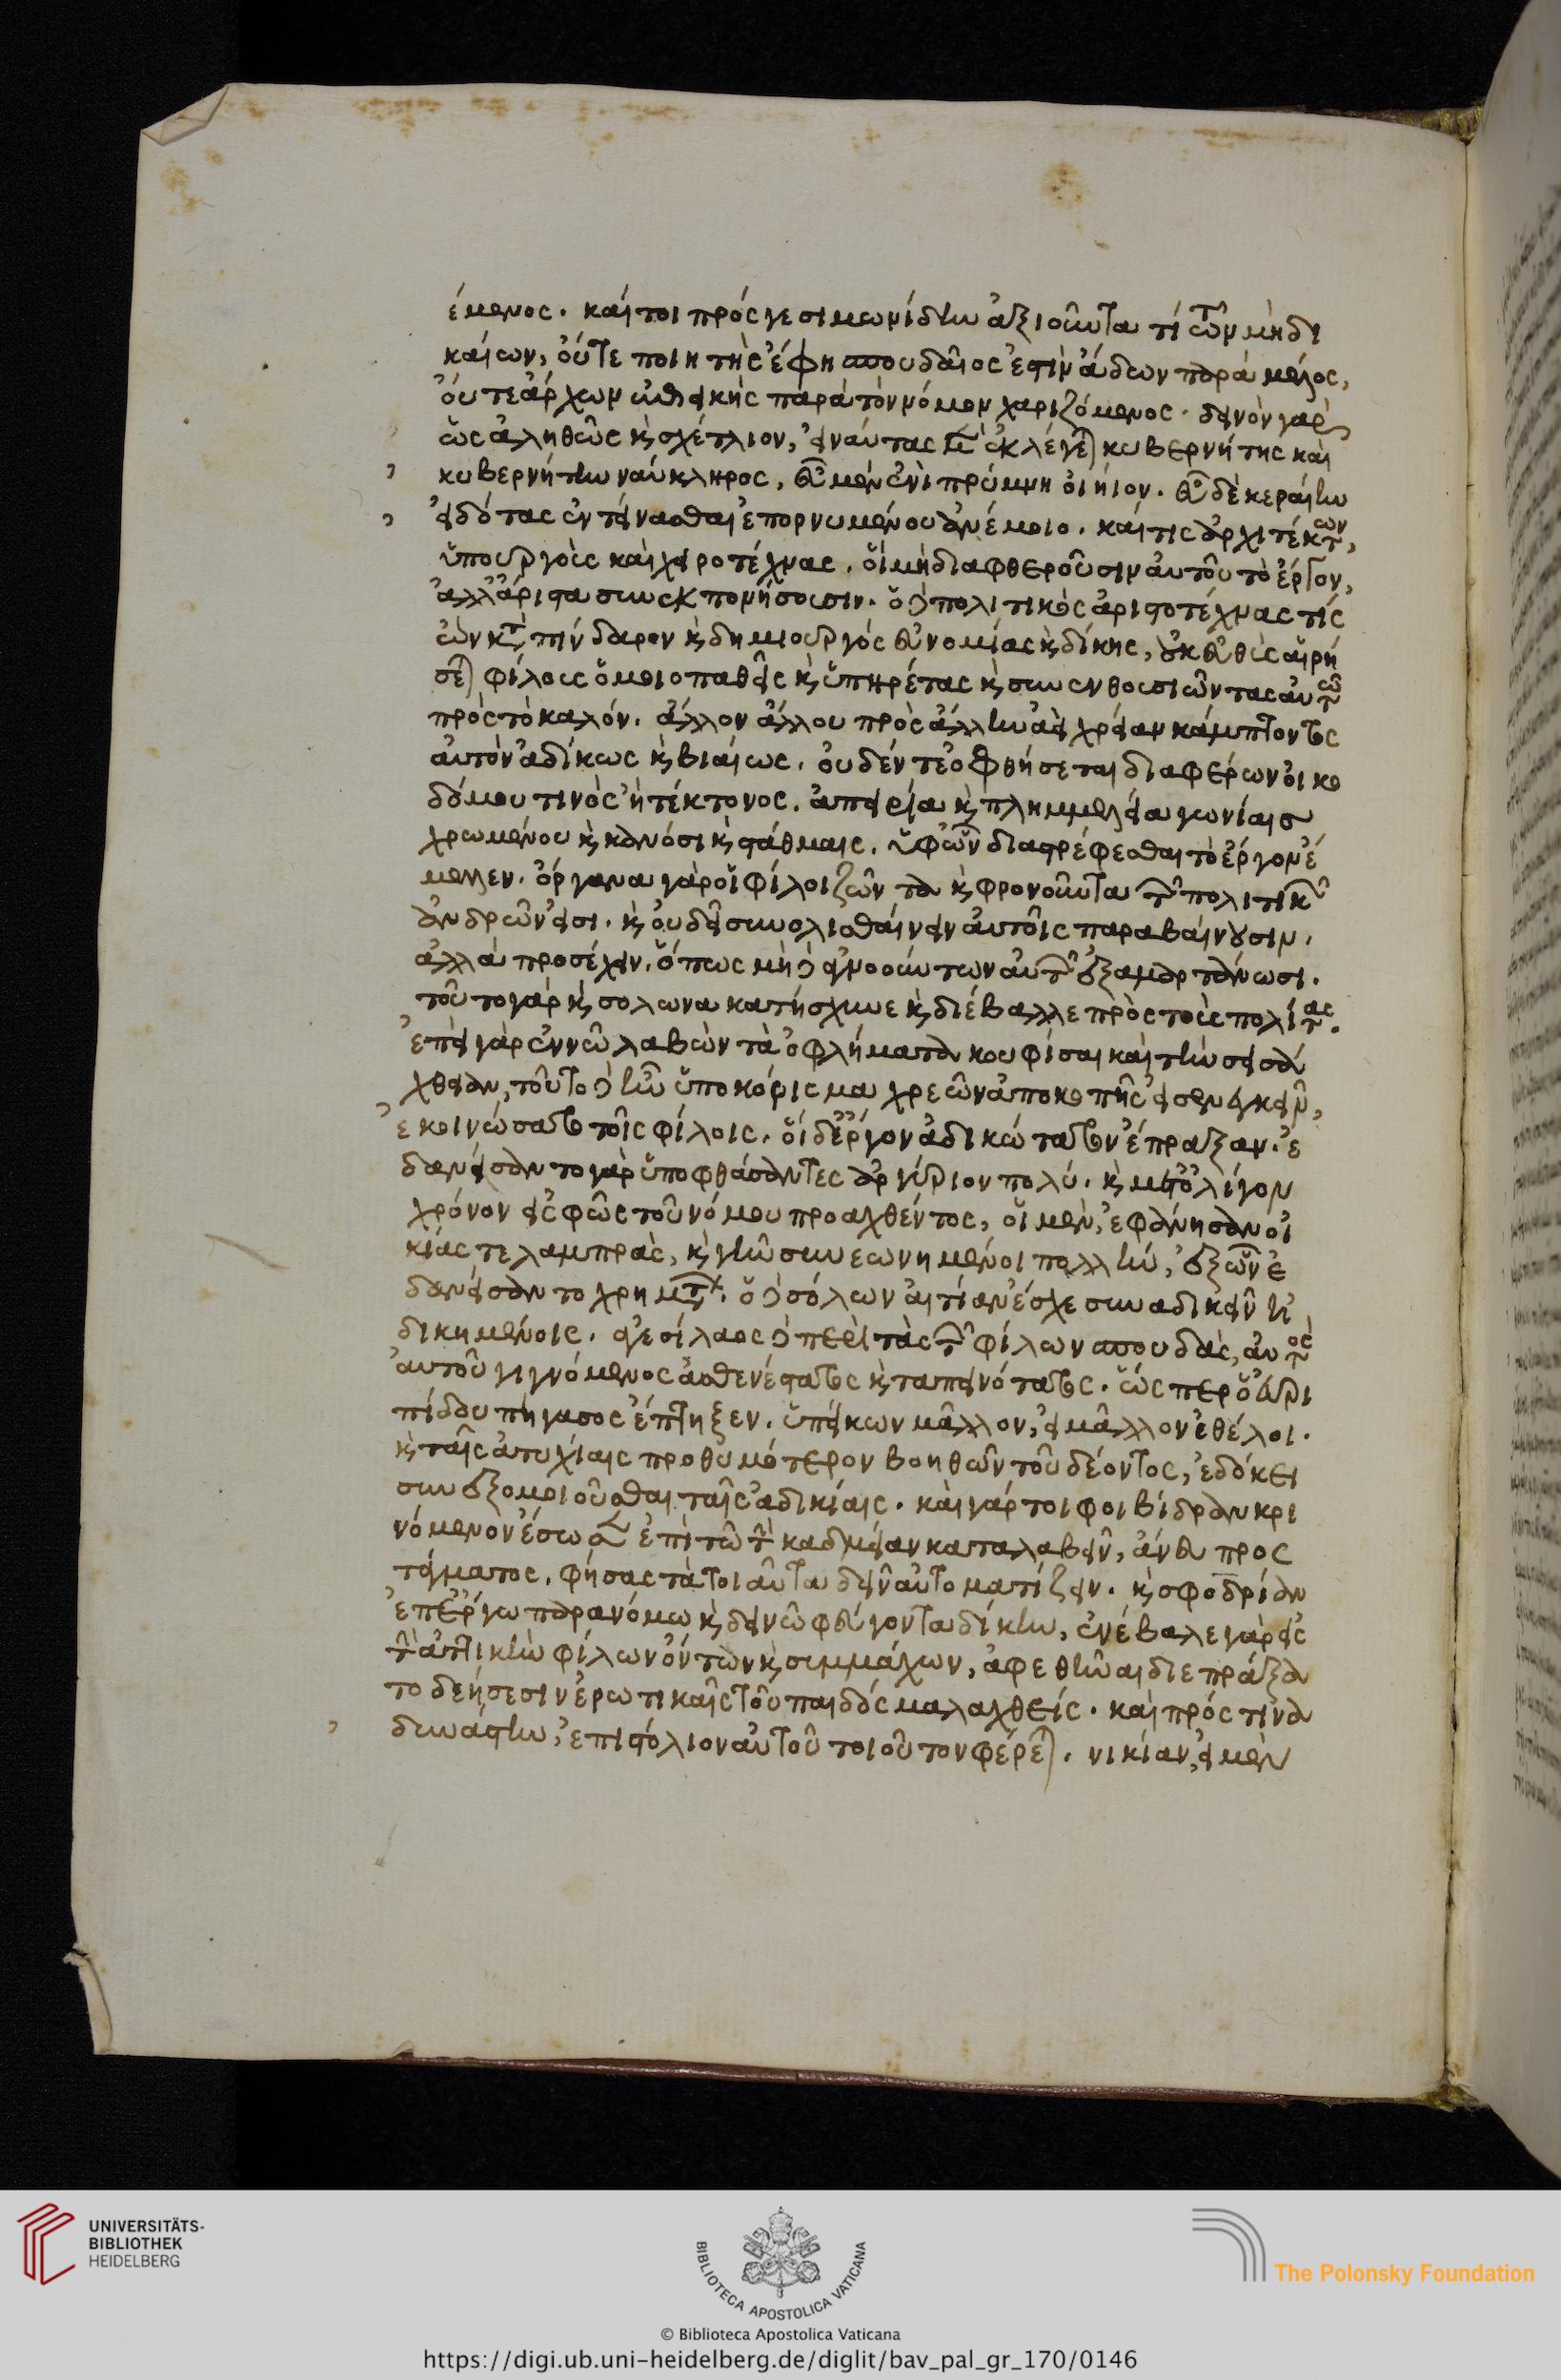 έμενος. καίτοι πρός γε σιμωνίδην ἀξιοῦντα τί τῶν μὴ δι
καίων, οὔτε ποιητὴς ἔφη σπουδαῖος ἐστὶν ἄδων παρὰ μέλος,
οὔτε ἄρχων ἐπιεικὴς παρὰ τὸν νόμον χαριζόμενος. δεινὸν γὰρ
ὡς ἀληθῶς καὶ σχέτλιον, εἰ ναύτας μὲν ἐκλέγεται κυβερνήτης καὶ
κυβερνήτην ναύκληρος, εὖ μὲν ἐνὶ πρύμνη οἰήιον. εὖ δὲ κεραίην
εἰδότας ἐντείνασθαι ἐπορνυμένου ἀνέμοιο. καί τις ἀρχιτέκτων,
ὑπουργοὺς καὶ χειροτέχνας, οἳ μὴ διαφθεροῦσιν αὐτοῦ τὸ ἔργον,
ἀλλ' ἄριστα συνεκπονήσουσιν. ὁ δὲ πολιτικὸς ἀριστοτέχνας τίς
ὢν κατὰ πίνδαρον καὶ δημιουργός εὐνομίας καὶ δίκης, οὐκ εὐθὺς αἱρή
σεται φίλους ὁμοιοπαθεῖς καὶ ὑπηρέτας καὶ συνενθουσιῶντας αὐτῶ
πρὸς τὸ καλόν. ἄλλον ἄλλου πρὸς ἄλλην ἀεὶ χρείαν κάμπτοντες
αὐτὸν ἀδίκως καὶ βιαίως. οὐδέν τε ὀφθήσεται διαφέρων οἰκο
δόμου τινὸς ἢ τέκτονος. ἀπειρία καὶ πλημμελεία γωνίαισ
χρωμένου καὶ κανόσι καὶ στάθμαις. ὑφ' ὧν διαστρέφεσθαι τὸ ἔργον ἔ
μελλεν. ὄργανα γὰρ οἱ φίλοι ζῶντα καὶ φρονοῦντα τῶν πολιτικῶν
ἀνδρῶν εἰσι. καὶ οὐ δεῖ συνολισθαίνειν αὐτοῖς παραβαίνουσιν.
ἀλλὰ προσέχειν. ὅπως μὴ δὲ ἀγνοούντων αὐτῶν ἐξαμαρτάνωσι.
τοῦτο γὰρ καὶ σόλωνα κατήσχυνε καὶ διέβαλλε πρὸς τοὺς πολίτας.
ἐπεὶ γὰρ ἐν νῶ λαβὼν τὰ ὀφλήματα κουφίσαι καὶ τὴν σεισά
χθειαν, τοῦτο δὲ ἦν ὑποκόρισμα χρεῶν ἀποκοπῆς εἰσενεγκεῖν,
ἐκοινώσατο τοῖς φίλοις. οἱ δ' ἔργον ἀδικώτατον ἔπραξαν. ἐ
δανείσαντο γὰρ ὑποφθάσαντες ἀργύριον πολύ. καὶ μετ' ὀλίγον
χρόνον εἰς φῶς τοῦ νόμου προαχθέντος, οἱ μὲν, ἐφάνησαν οἰ
κίας τε λαμπρὰς, καὶ γῆν συνεωνημένοι πολλήν, ἐξ ὧν ἐ
δανείσαντο χρημάτων. ὁ δὲ σόλων αἰτίαν ἔσχε συναδικεῖν ἠ
δικημένοις. ἀγεσίλαος δὲ περὶ τὰς τῶν φίλων σπουδὰς, αὐτὸς
αὐτοῦ γιγνόμενος ἀσθενέστατος καὶ ταπεινότατος. ὥσπερ ὁ εὐρι
πίδου πήγασος ἔπτηξεν. ὑπείκων μᾶλλον, εἰ μᾶλλον ἐθέλοι.
καὶ ταῖς ἀτυχίαις προθυμότερον βοηθῶν τοῦ δέοντος, ἐδόκει
συνεξομοιοῦσθαι ταῖς ἀδικίαις. καὶ γάρ τοι φοιβίδαν κρι
νόμενον ἔσωσεν ἐπὶ τῶ τὴν καδμείαν καταλαβεῖν, ἄνευ προς
τάγματος. φήσας τὰ τοιαῦτα δεῖν αὐτοματίζειν. καὶ σφοδρίαν
ἐπ' ἔργω παρανόμω καὶ δεινῶ φεύγοντα δίκην, ἐνέβαλε γὰρ εἰς
τὴν ἀττικὴν φίλων ὄντων καὶ συμμάχων, ἀφεθῆναι διεπράξα
το δεήσεσιν ἐρωτικαῖς τοῦ παιδός μαλαχθείς. καὶ πρός τινα
δυνάστην, ἐπιστόλιον αὐτοῦ τοιοῦτον φέρεται. νικίαν, εἰ μὲν
UNIVERSITÄTS-
BIBLIOTHEK
HEIDELBERG
BIBLIOTECA APOSTOLICA VATICANA
The Polonsky Foundation
© Biblioteca Apostolica Vaticana
https://digi.ub.uni-heidelberg.de/diglit/bav_pal_gr_170/0146